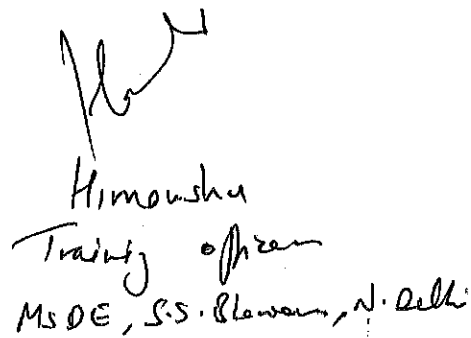 Himanshu
Training officer
MSDE, S.S. Bhawan, N. Delhi